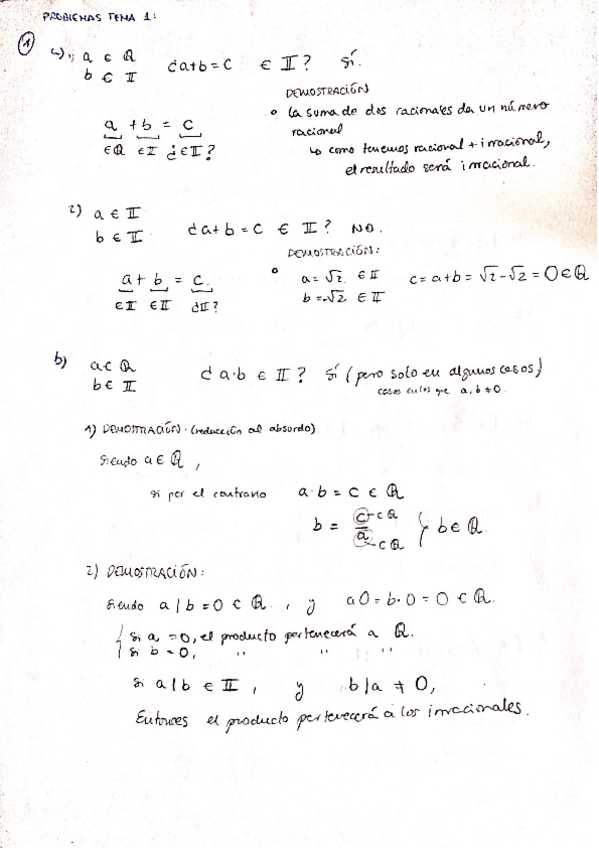 PROBLEMAS TEMA 1:
① a) 1) a ∈ ℚ
b ∈ 𝕀 ¿a+b=c ∈ 𝕀? Sí.
DEMOSTRACIÓN
a + b = c
∈ℚ ∈𝕀 ¿∈𝕀?
• la suma de dos racionales da un número
racional
↳ como tenemos racional + irracional,
el resultado será irracional.
2) a ∈ 𝕀
b ∈ 𝕀 ¿a+b=c ∈ 𝕀? NO.
DEMOSTRACIÓN:
a + b = c.
∈𝕀 ∈𝕀 ¿𝕀?
• a = √2. ∈ 𝕀 c = a+b = √2 - √2 = 0 ∈ ℚ
b = -√2 ∈ 𝕀
b) a ∈ ℚ
b ∈ 𝕀 ¿a·b ∈ 𝕀? Sí (pero solo en algunos casos)
casos en los que a, b ≠ 0.
1) DEMOSTRACIÓN. (reducción al absurdo)
siendo a ∈ ℚ,
si por el contrario a·b = c ∈ ℚ
b = c/a ∈ ℚ ∈ ℚ } b ∈ ℚ.
2) DEMOSTRACIÓN:
siendo a/b = 0 ∈ ℚ., y a0 = b·0 = 0 ∈ ℚ.
{ si a = 0, el producto pertenecerá a ℚ.
si b = 0, " " "
si a/b ∈ 𝕀, y b/a ≠ 0,
Entonces el producto pertenecerá a los irracionales.